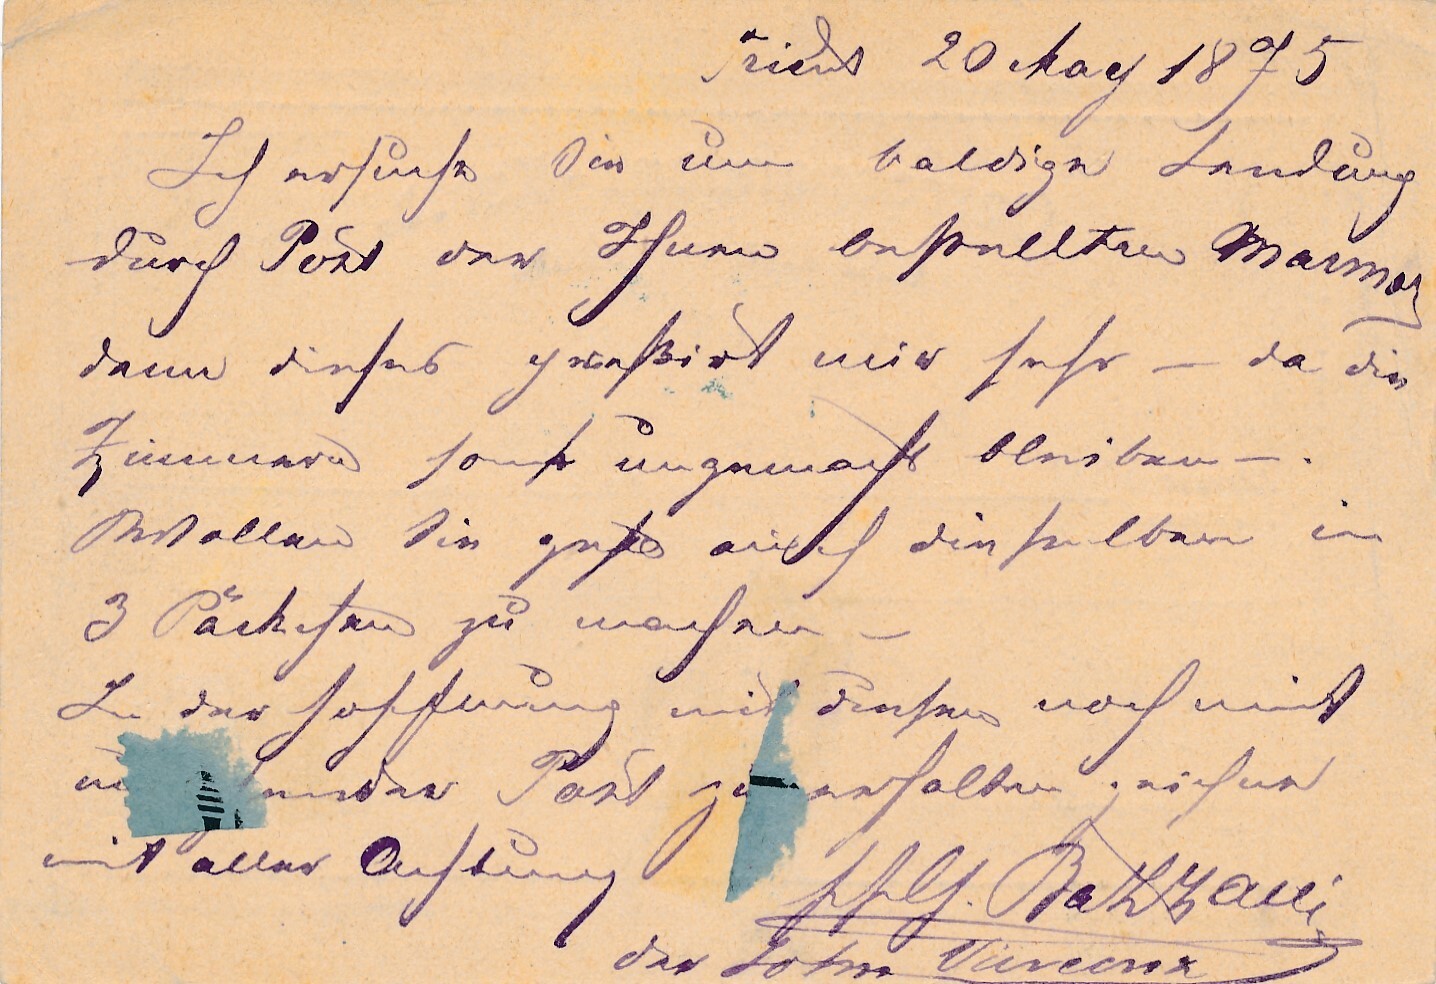 Trient 20 May 1875
Ich ersuche Sie um baldige Sendung
durch Post der Ihnen bestellten Marmor
denn dieses pressirt mir sehr – da die
Zimmern sonst ungemacht bleiben –.
Wollen Sie gefs auch dieselben in
3 Päckchen zu machen –
In der Hoffnung mit diesen noch mit
Post zu erhalten zeichne
mit aller Achtung ppG. Bazzani
der Sohn